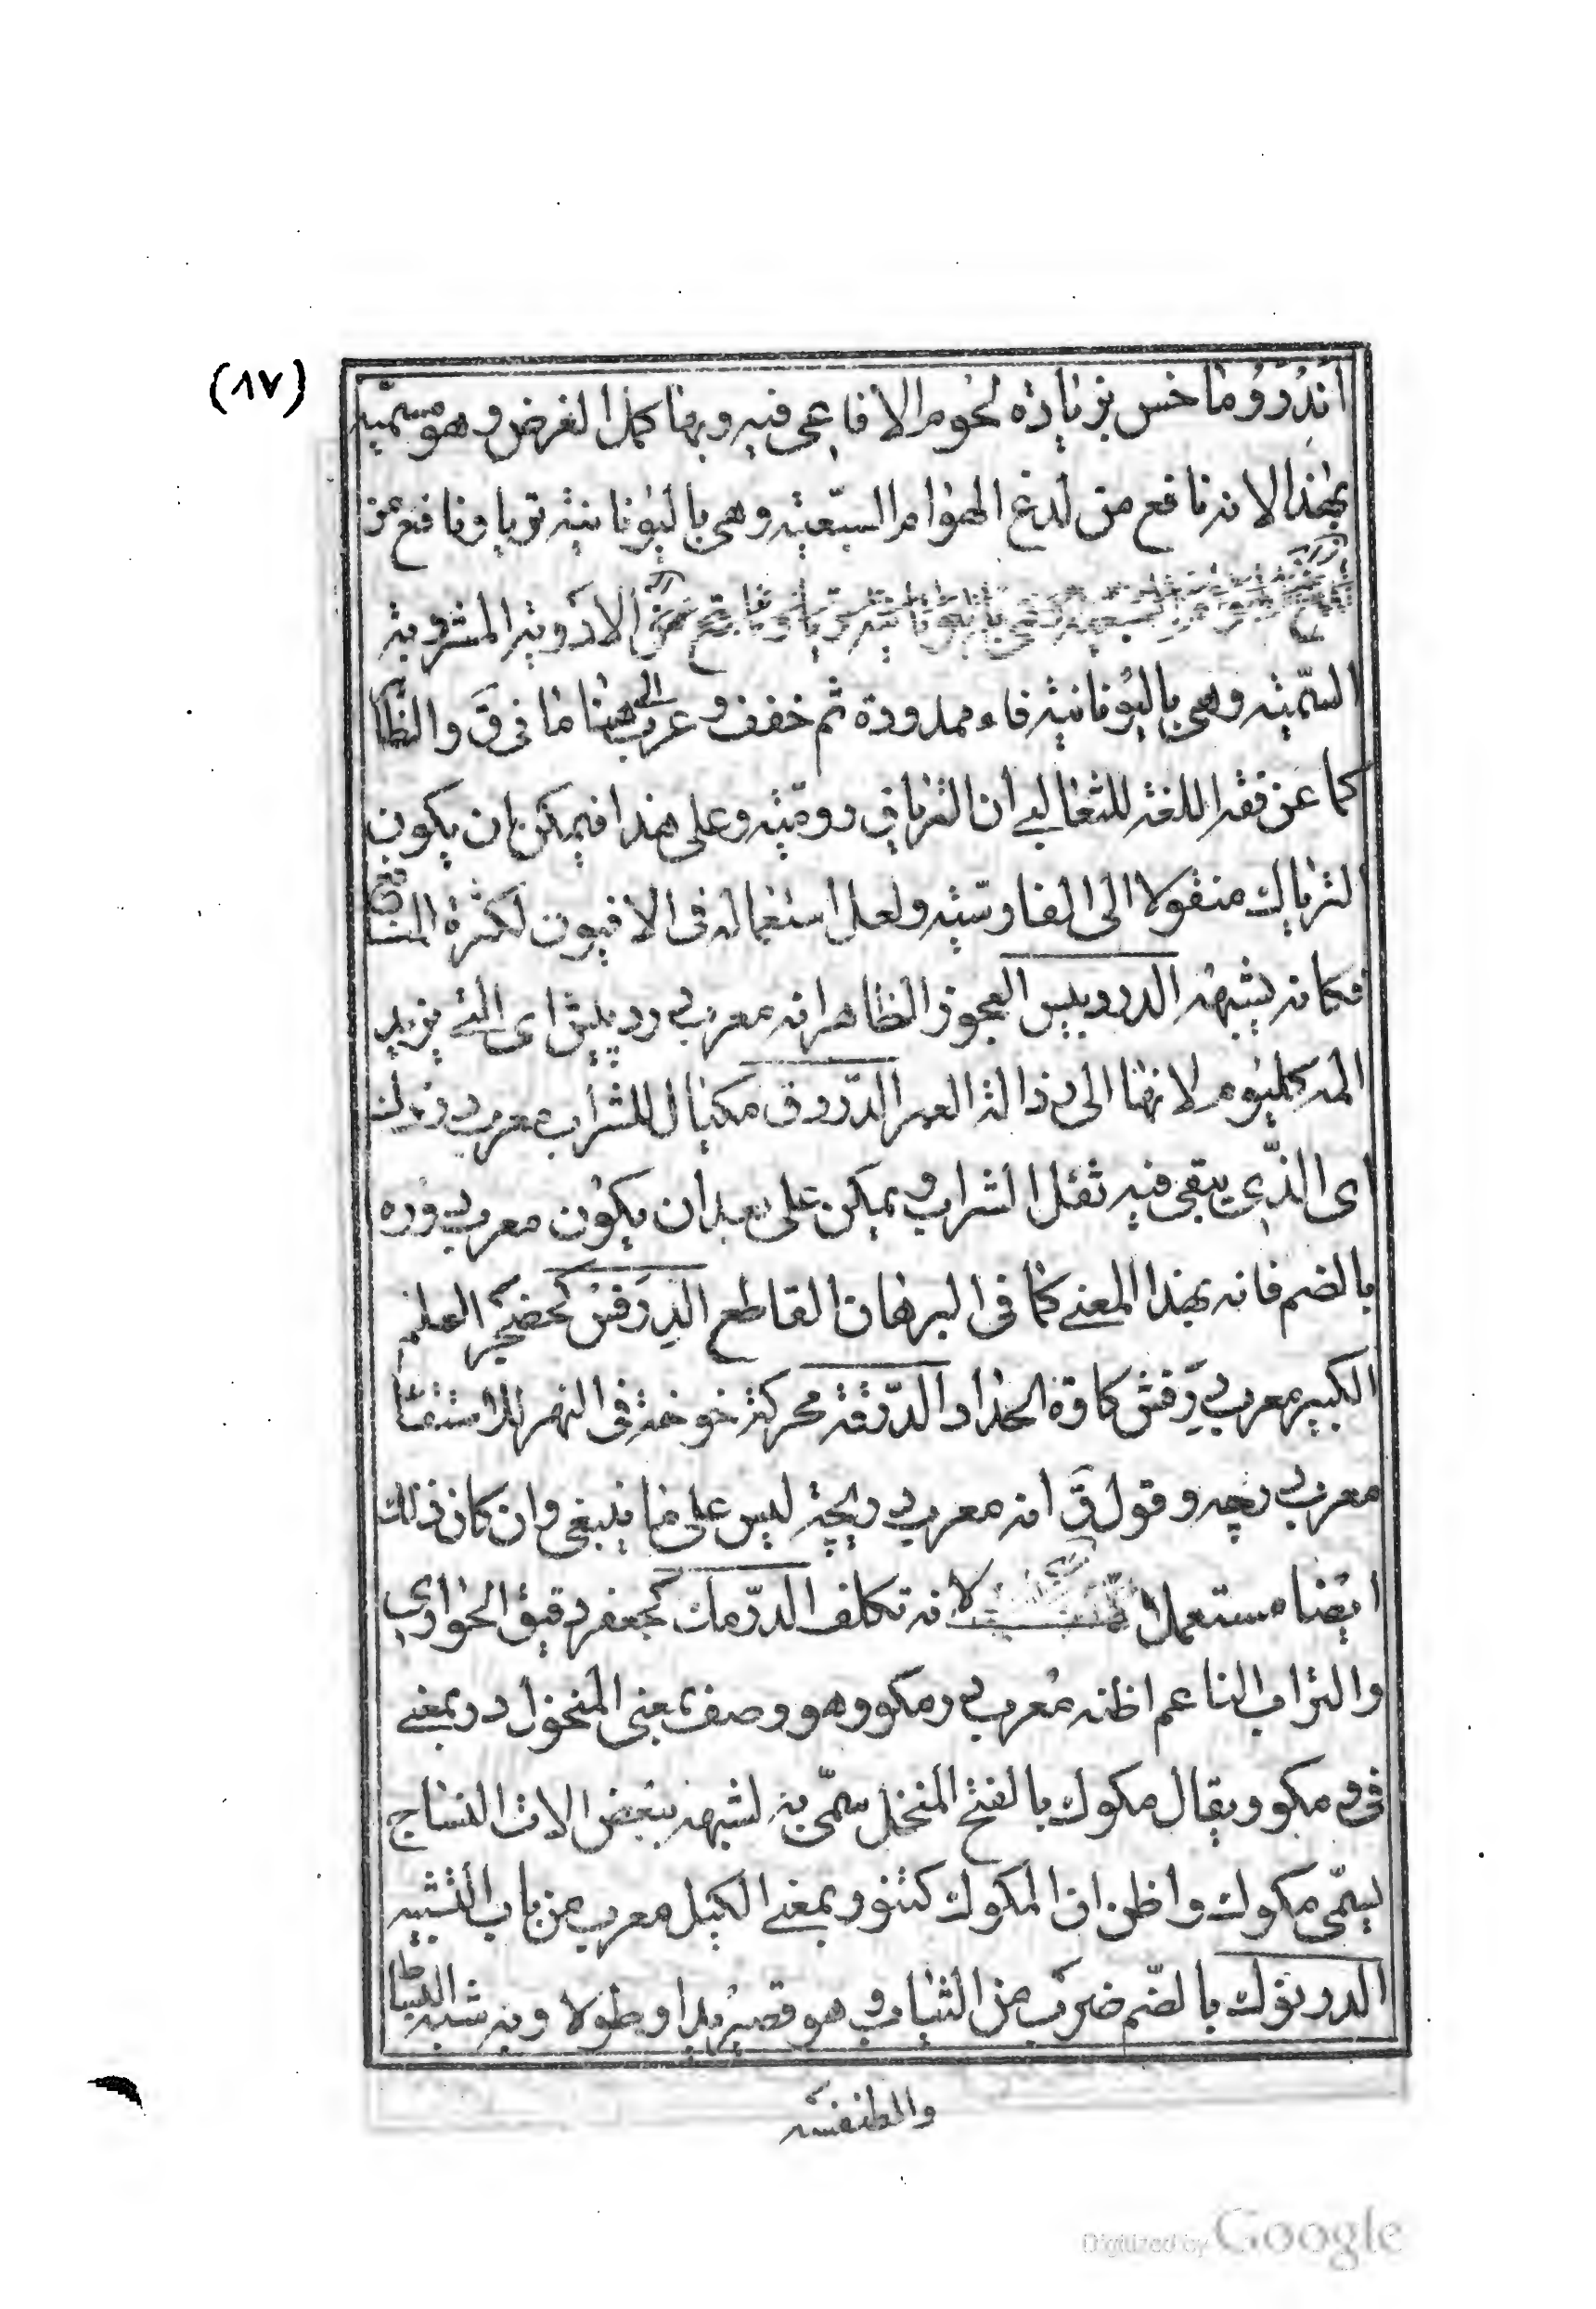 (٨٧)
اندروماخس بزيادة لحوم الافاعى فيه وبها كمل الغرض وهو مسميه
بهذا لانه نافع من لدغ الهوام السبعيه وهى باليونانيه تريا ونافع من
الادويه المشروبه
السميه وهى باليونانيه قاء ممدودة ثم خفف وعرب هنا ما فى ق والظا
كما عن فقه اللغه للثعالبى ان الترياق روميه وعلى هذا فيمكن ان يكون
الترياك منقولا الى الفارسيه ولعل استعماله فى الافيون لكثرة
فكانه يشبهه الدردبيس العجوز الظاهر انه معرب درد بيش اى التى يزيد
المه كليوم لانها الى رذالة العمر الدّردق مكيال للشراب معرب دردك
اى الذى يبقى فيه ثفل الشراب ويمكن على بعد ان يكون معرب دوره
بالضم فانه بهذا المعنى كما فى البرهان القاطع الدِرَفس كحضجر العلم
الكبير معرب دِرَفش كاوة الحداد الدّرقة محركة خوخة فى النهر
معرب دريچه وقول ق انه معرب دريچة ليس على ما ينبغى وان كان ذلك
ايضا مستعملا لانه تكلف الدّرمك كجعفر دقيق الحوارى
والتراب الناعم اظنه معرب درمكو وهو وصف بمعنى المنخول در بمعنى
فى مكو ويقال مكوك بالفتح المنخل سمى به لشبهه ببعض الات النساج
يسمى مكوك واظن ان المكوك كتنور بمعنى الكيل معرب من باب التشبيه
الدرنوك بالضم ضرب من الثياب وهو قصير وطولا وبه شبه
والطنفسه
Digitized by Google